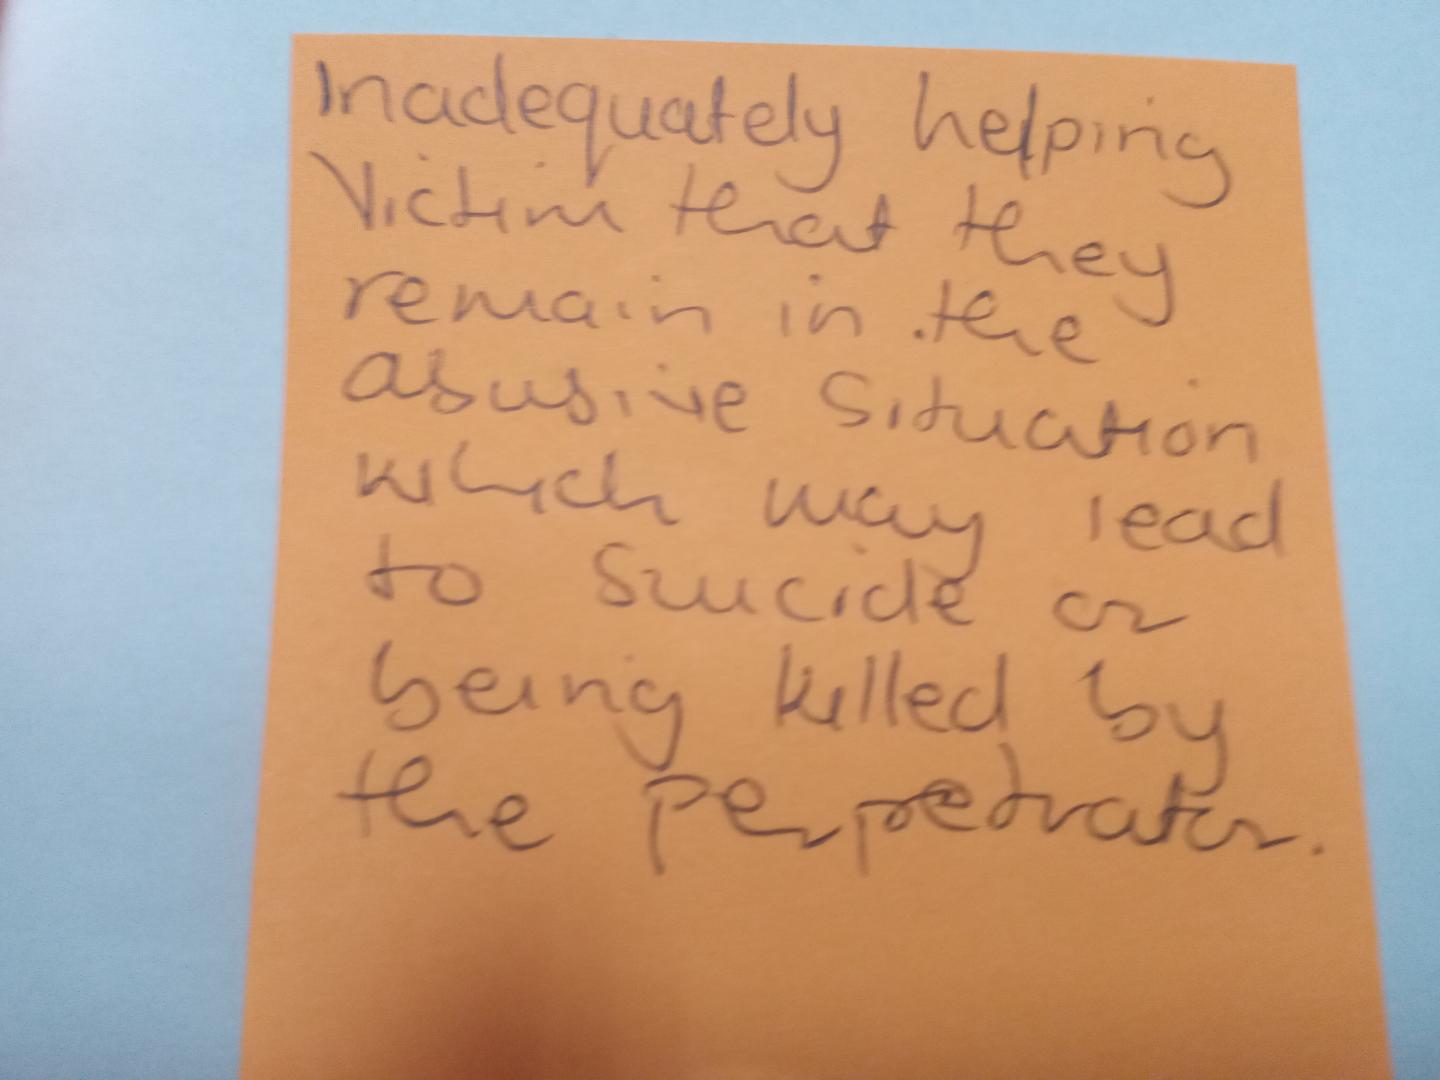 Inadequately helping
Victim that they
remain in the
abusive situation
which may lead
to suicide or
being killed by
the perpetrator.